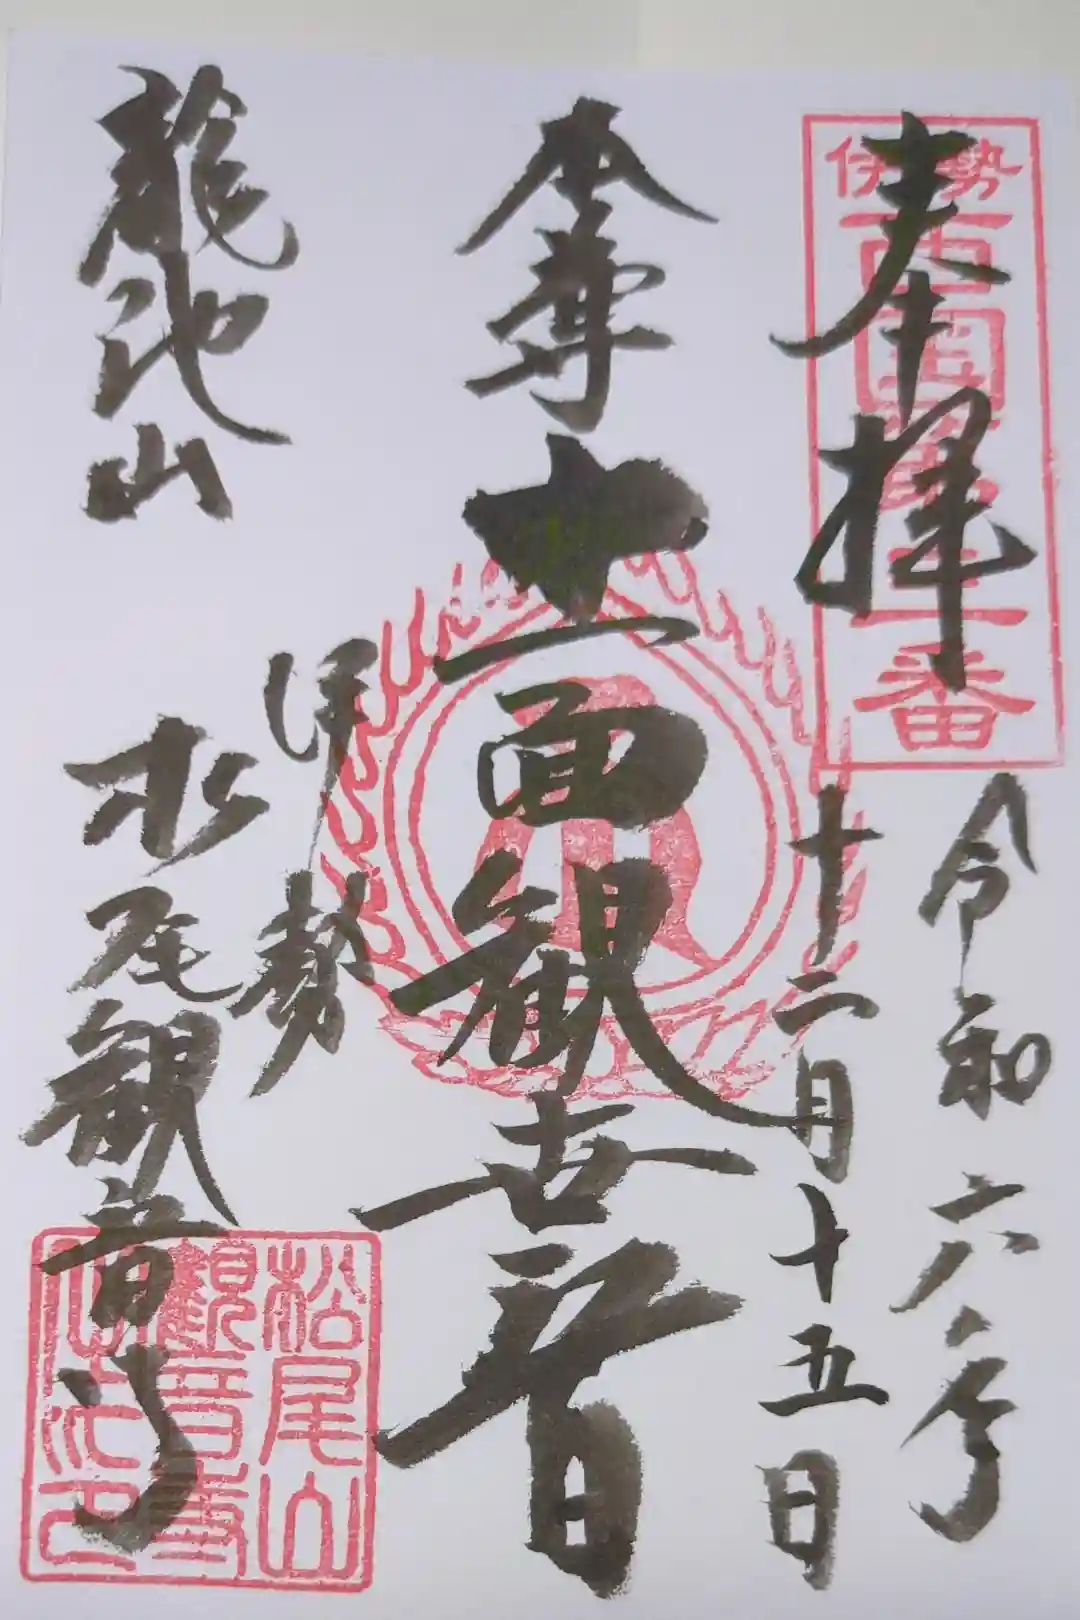 奉拝
伊勢
西國第三番
令和六年
十二月十五日
本尊
十一面観世音
龍池山
伊勢
松尾観音寺
松尾山
観音寺